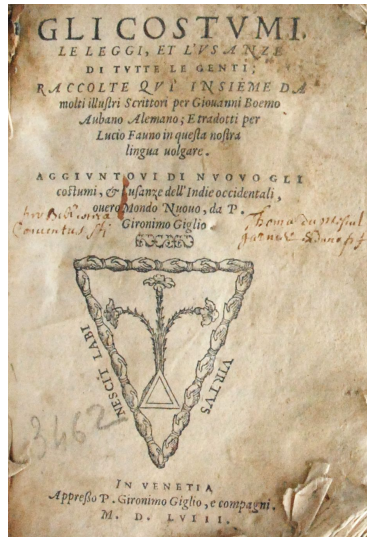 GLI COSTVMI,
LE LEGGI, ET L'VSANZE
DI TVTTE LE GENTI;
RACCOLTE QVI INSIEME DA
molti illustri Scrittori per Giouanni Boemo
Aubano Alemano; E tradotti per
Lucio Fauno in questa nostra
lingua uolgare.
AGGIVNTOVI DI NVOVO GLI
costumi, & l'usanze dell'Indie occidentali,
ouero Mondo Nuouo, da P.
Gironimo Giglio
NESCIT LABI
VIRTVS
3462
IN VENETIA
Appresso P. Gironimo Giglio, e compagni.
M. D. LVIII.